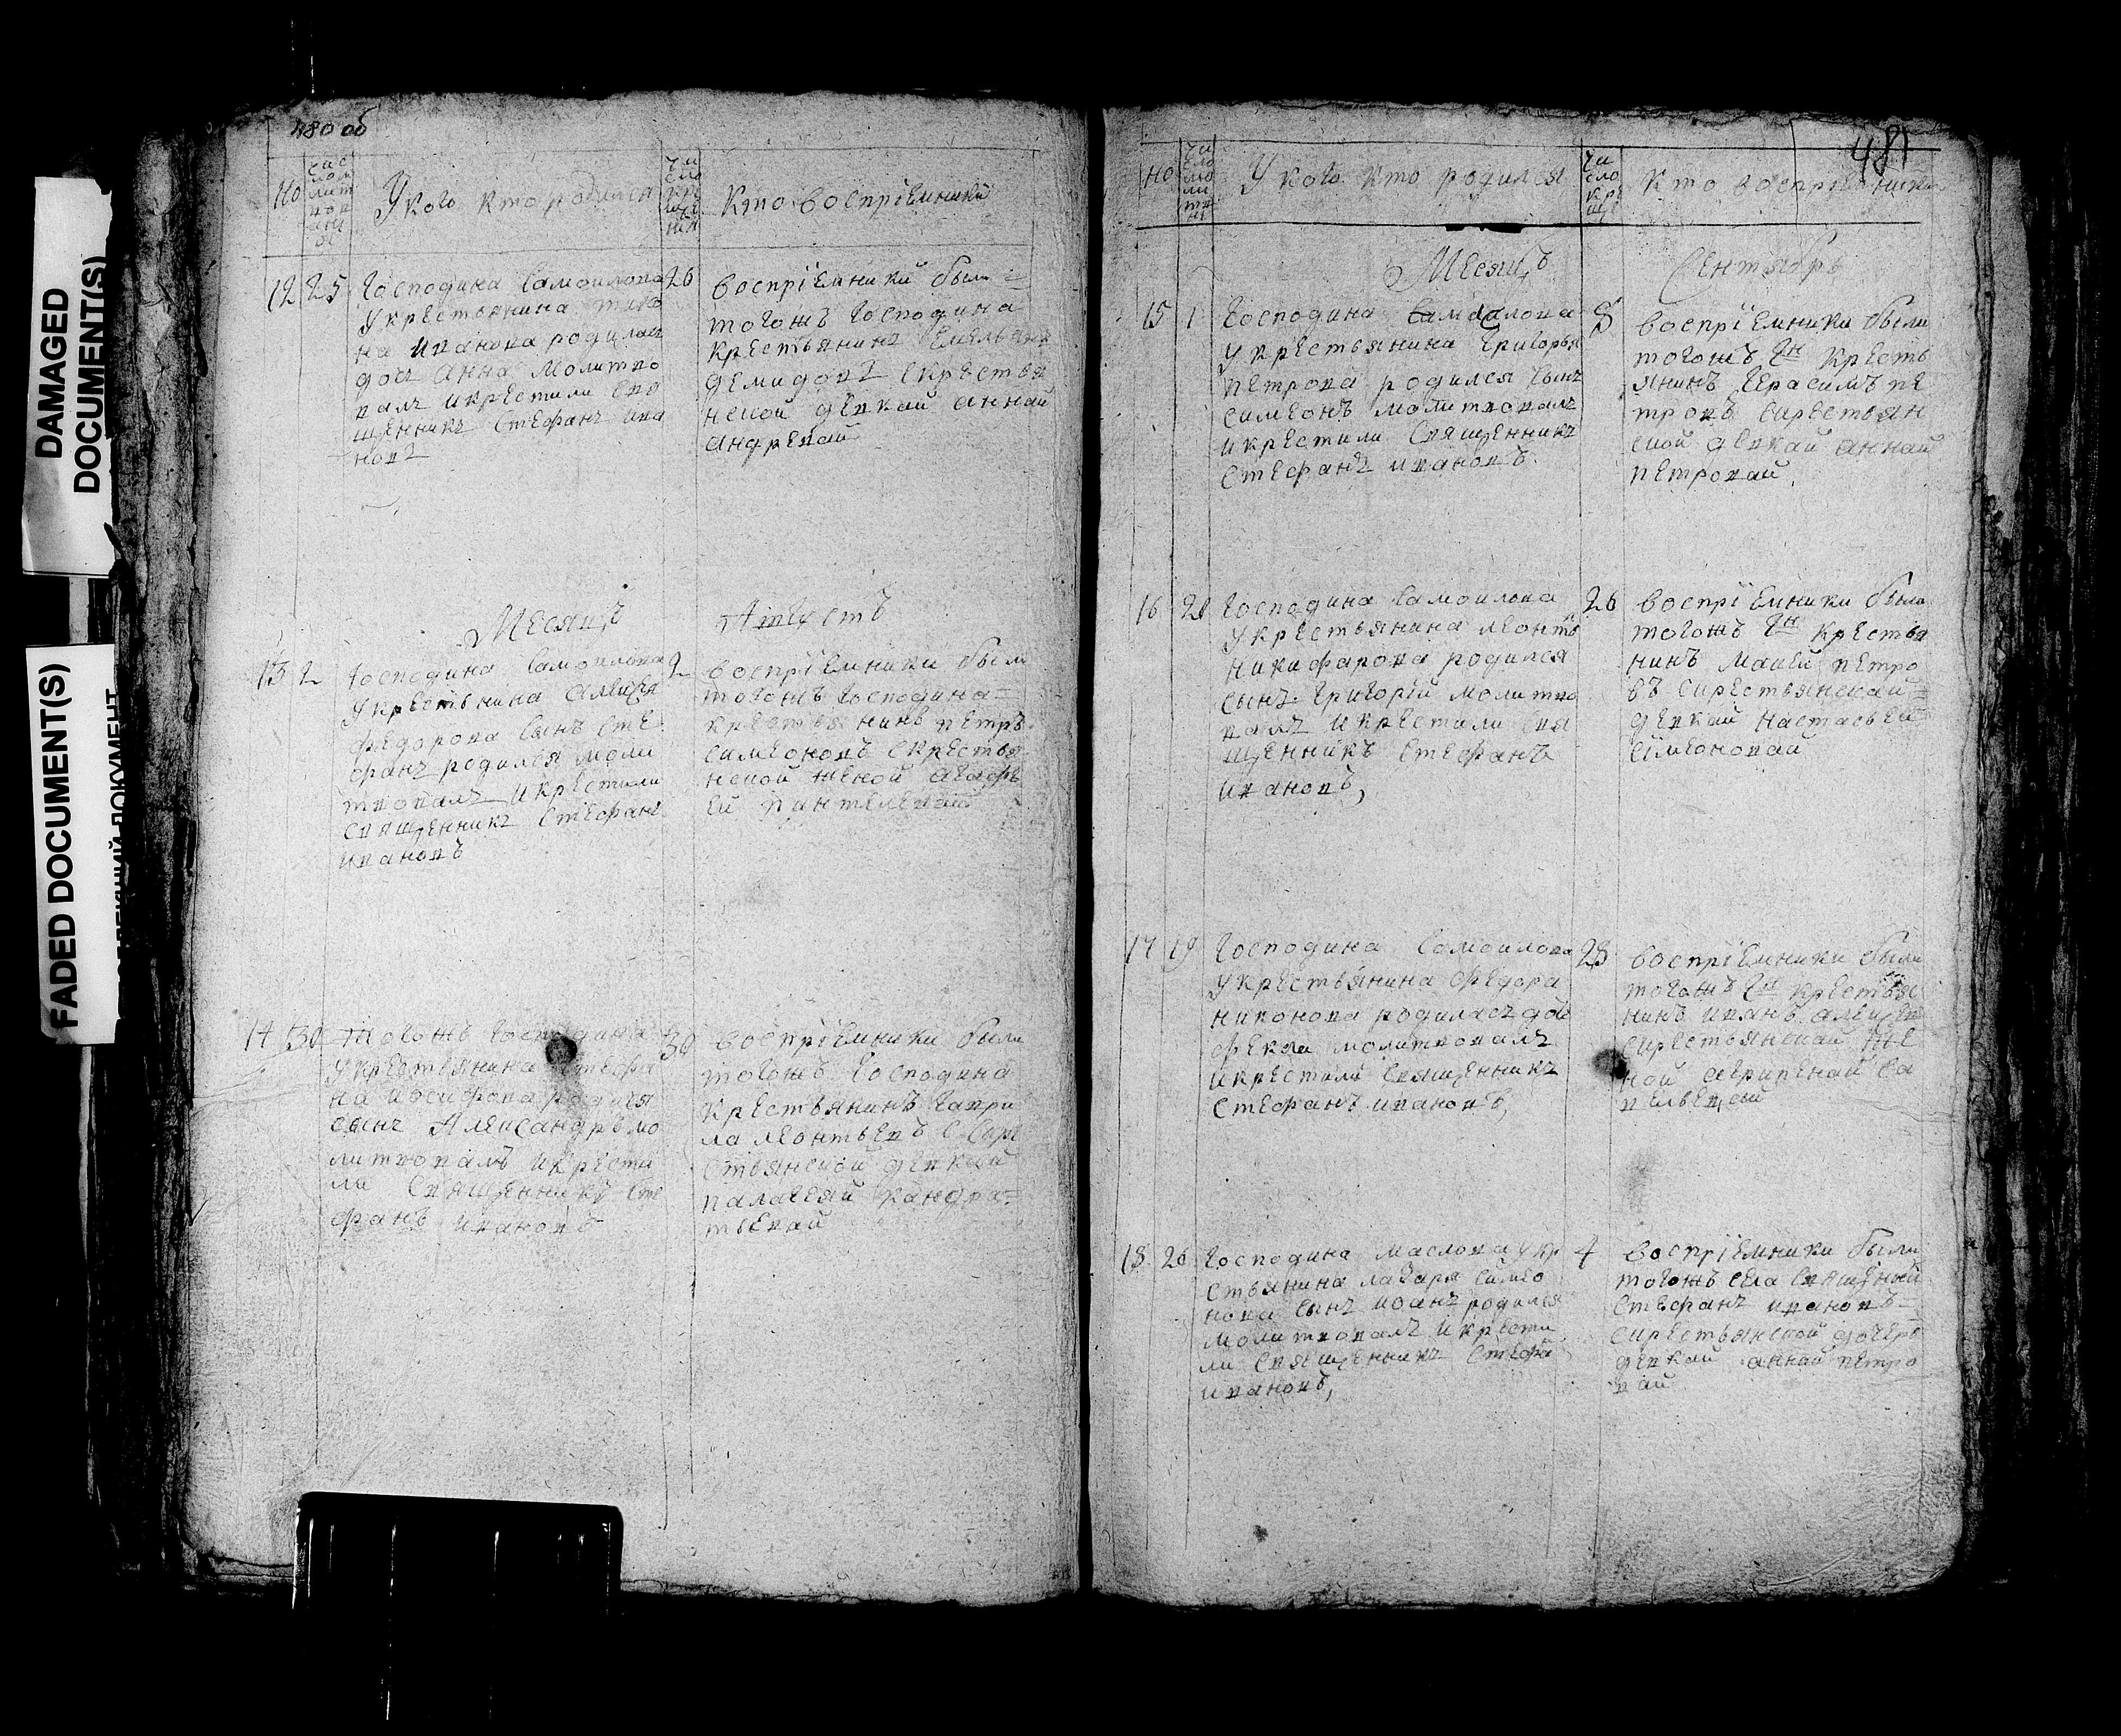 DAMAGED
DOCUMENT(S)
FADED DOCUMENT(S)
480 об
но
У кого кто родился
Кто воспрiемники
12 25 Господина Самоилова 26
у крестьянина
на иванова родилас
доч Анна молитво
валъ и крестили свя
щенникъ Стефанъ ива
новъ
воспрiемники были
тогожъ Господина
крестьянинъ Емельянъ
демидовъ с крестья
нской девкай аннай
андревай
Месяцъ Августъ
13 2 Господина Самоилова 2
у крестьянина алексея
федорова сынъ сте
фанъ родился моли
твовалъ и крестили
священникъ Стефанъ
ивановъ
воспрiемники были
тогожъ господина
крестьянинъ петръ
симеоновъ с крестья
нской женой агафь
ей пантелевай
14 30 Тогожъ Господина 30
у крестьянина Стефа
на иосифова родился
сынъ Александръ мо
литвовалъ и крести
ли Священникъ Сте
фанъ ивановъ
воспрiемники были
тогожъ Господина
крестьянинъ гаври
ла леонтьевъ с кре
стьянской девкой
палагеяй кандра
тьевай
481
но
У кого кто родился
Кто воспрiемники
Месяцъ Сентябрь
15 1 Господина Самоилова 8
у крестьянина Григорья
петрова родился сынъ
симеонъ молитвовалъ
и крестили Священникъ
стефанъ ивановъ.
воспрiемники были
тогожъ Гн кресть
янинъ Герасимъ пе
тровъ с крестьян
ской девкай аннай
петровай
16 Господина Самоилова 26
у крестьянина леонтья
никифарова родился
сынъ Григорiй молитво
валъ и крестили Свя
щенникъ Стефанъ
ивановъ,
воспрiемники были
тогожъ Гн крестья
нинъ петро
въ с крестьянскай
девкай настасьей
симеоновай
17 19 Господина Самоилова 28
у крестьянина федора
никонова родилась доч
фекла молитвовалъ
и крестили Священникъ
Стефанъ ивановъ,
воспрiемники были
тогожъ Гн крестья
нинъ иванъ алексеев
с крестьянскай же
ной авгрипенай са
вельевой
18 26 Господина маслова у кр 4
стьянина лазаря симео
нова сынъ иоанъ родился
молитвовалъ и крести
ли Священникъ Стефа
ивановъ,
воспрiемники были
тогожъ села Священый
Стефанъ ивановъ
с крестьянской дочерю
девкай аннай петро
вай